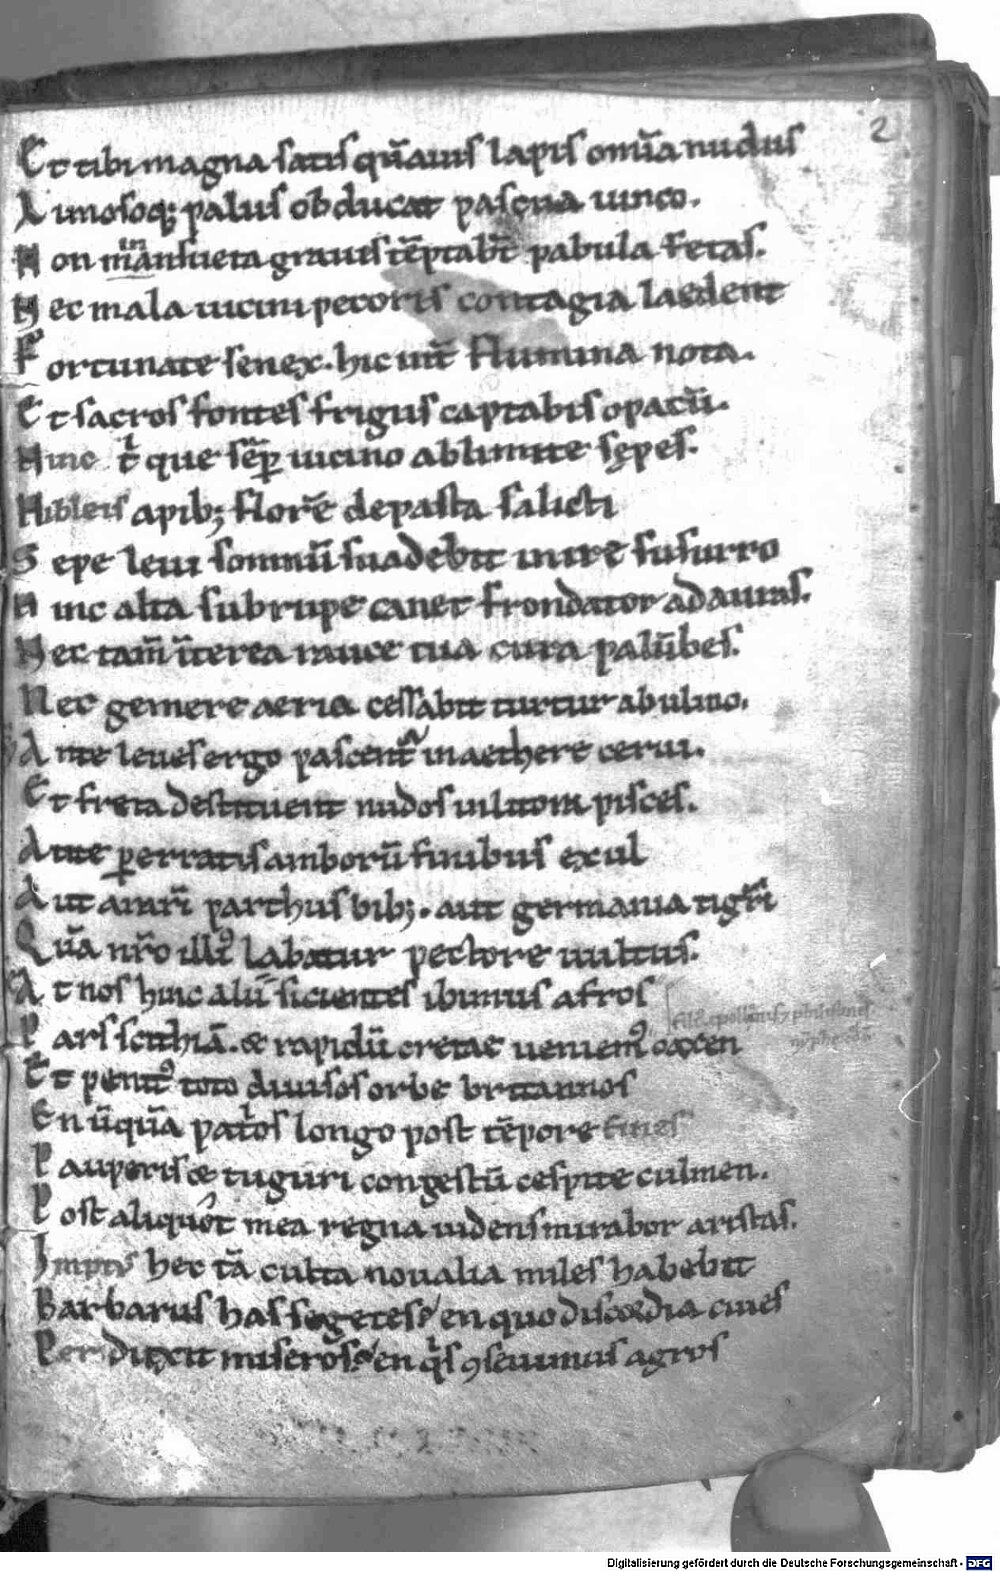 2
Et tibi magna satis quāuis lapis om̄ia nudus
Limosoq; palus obducat pascua iunco.
Non in mansueta grauis tēptabt̄ pabula fetas.
Nec mala uicini pecoris contagia laedent
Fortunate senex. hic int̄ flumina nota.
Et sacros fontes frigus captabis opacū.
Hinc t que sēp uicino ab limite sępes.
Hibleis apib; florē depasta salicti
Sepe leui somnū suadebit inire susurro
Hinc alta sub rupe canet frondator ad auras.
Nec tam̄ īterea rauce tua cura palūbes.
Nec gemere aeria cessabit turtur ab ulmo.
Ante leues ergo pascent in aethere cerui.
Et freta destituent nudos in litora pisces.
Ante perratis amborū finibus exul
Aut ararī parthus bib; . aut germania tigrī
Quā nr̄o illi labatur pectore uultus.
At nos hinc alii sicientes ibimus afros
Pars scithiā. & rapidū cretae ueniem oaxen
Et penit toto diuisos orbe britannos
En ūquā patos longo post tēpore fines
Pauperis & tuguri congestū cespite culmen.
Post aliquot mea regna uidens mirabor aristas.
Impius hec tā culta noualia miles habebit
Barbarus has segetes? en quo discordia ciues
Perduxit miseros? en qis 9seuimus agros
Digitalisierung gefördert durch die Deutsche Forschungsgemeinschaft - DFG